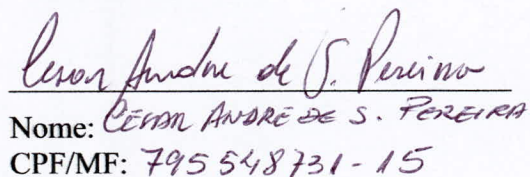 Cesar Andre de S. Pereira
Nome: CÉSAR ANDRE DE S. PEREIRA
CPF/MF: 795548731-15